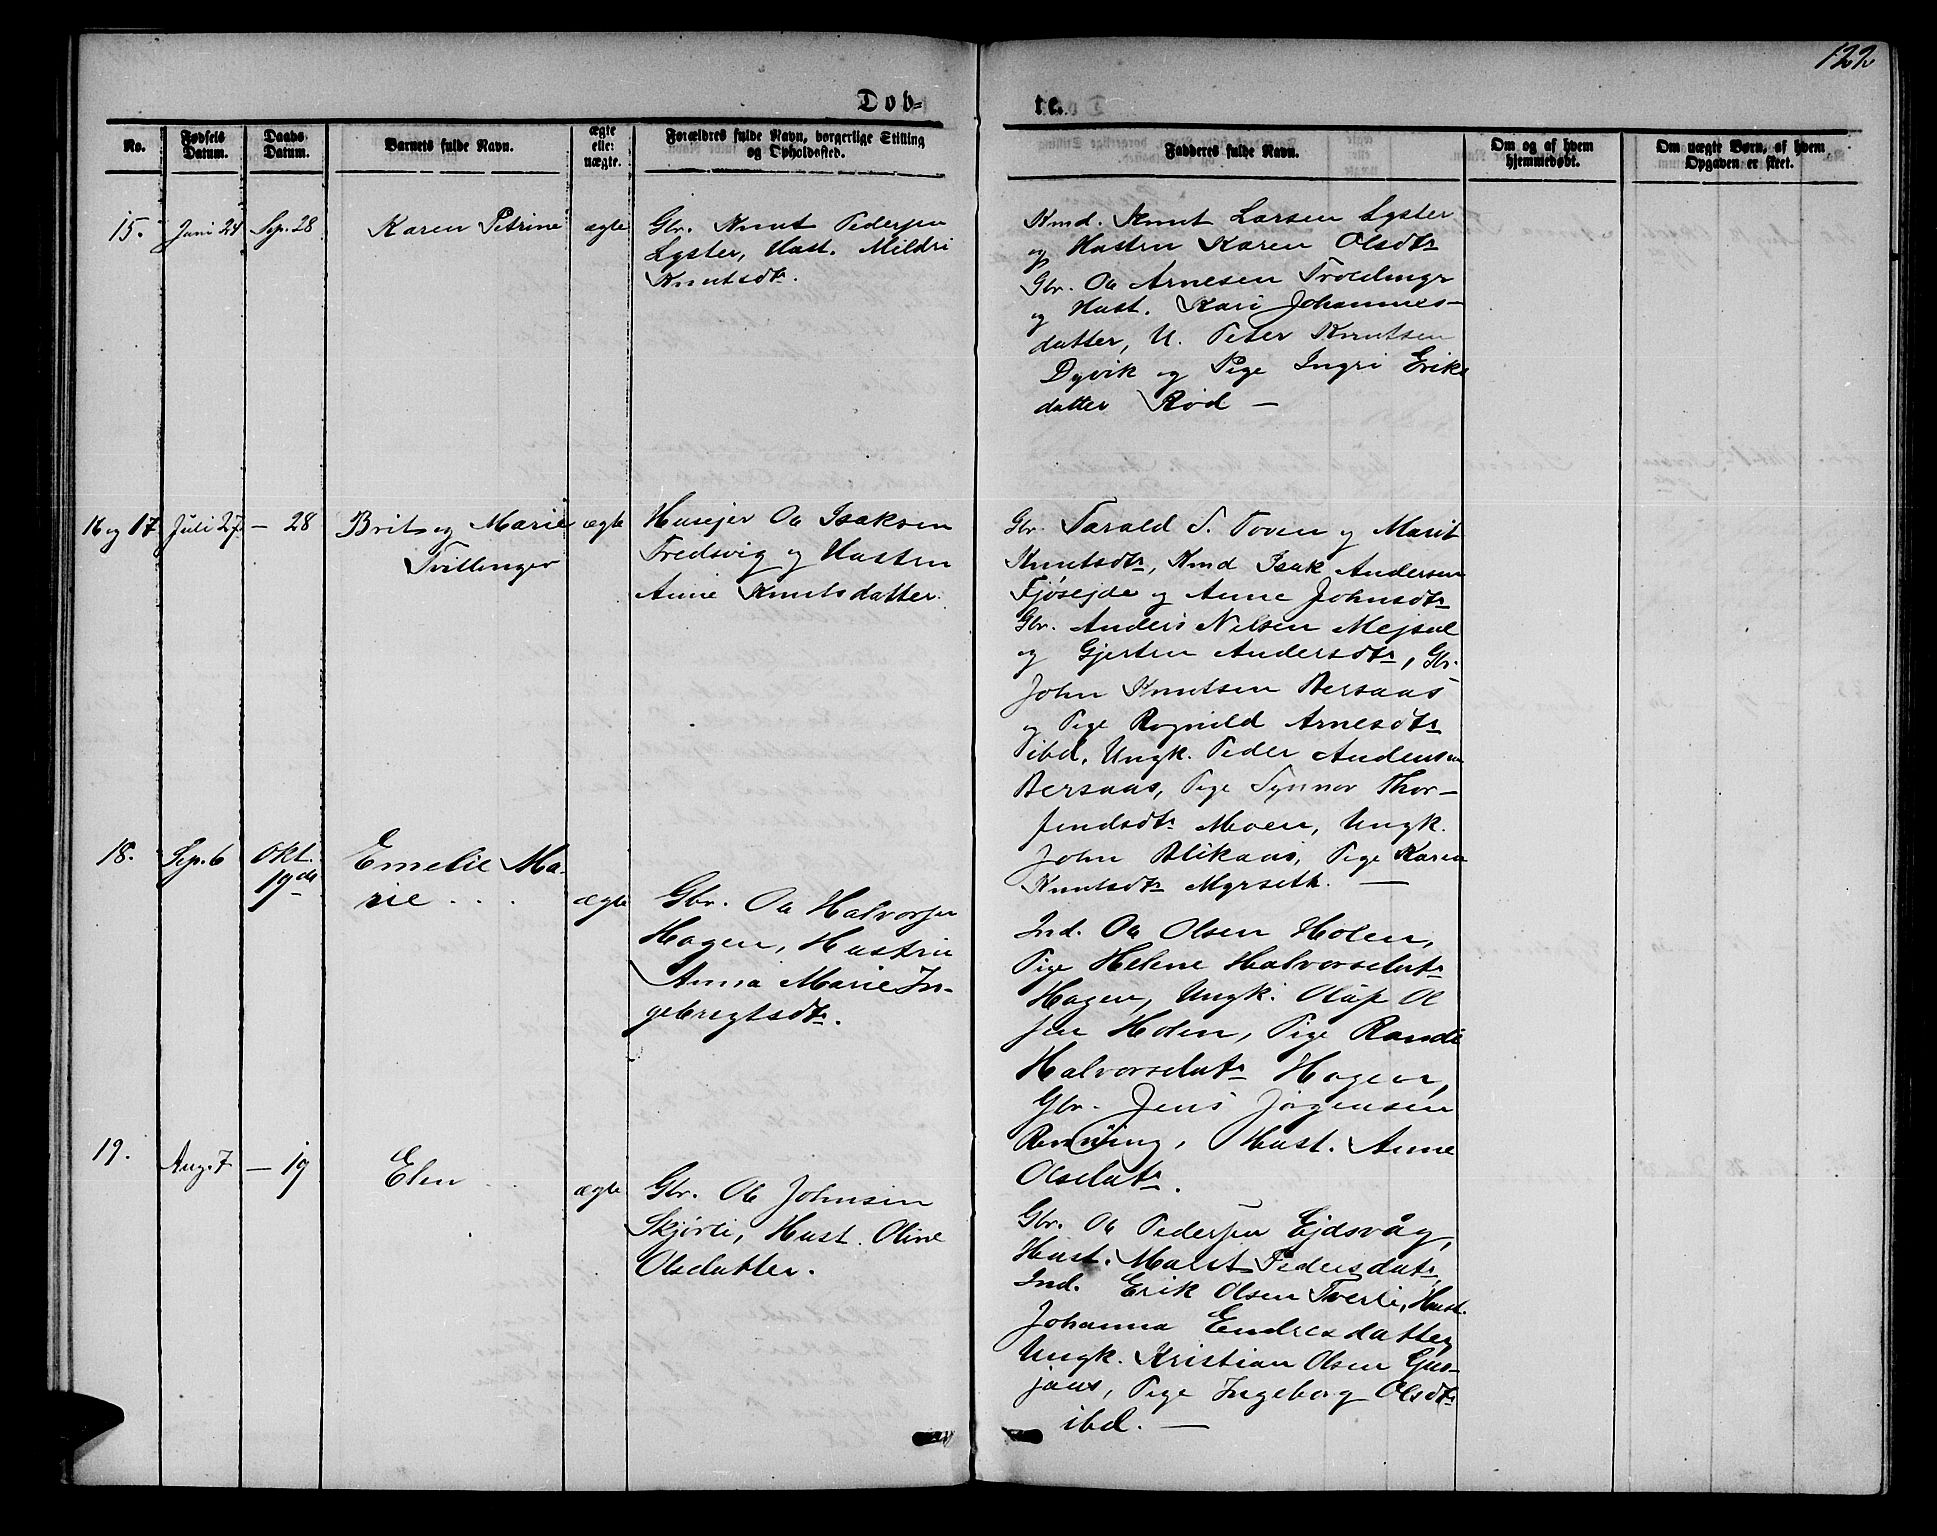 122
Døb-
te.
No.
Fødsels Datum.
Daabs Datum.
Barnets fulde Navn.
ægte
elle:
uægte.
Forældres fulde Navn, borgerlige Stilling
og Opholdssted.
Fadderes fulde Navn.
Om og af hvem
hjemmedøbt.
Om uægte Børn, af hvem
Opgaven er skeet.
15. Juni 24 Sep. 28 Karen Petrine ægte
Gbr. Knut Pedersen
Lyster, Hust. Mildri
Knutsdtr.
Kmd. Knut Larsen Lyster
og Hustru Karen Olsdtr
Gbr. Ole Arnesen
og Hust. Kari Johannes-
datter, U. Peter Knutsen
Dyvik og Pige Ingri Eriks
datter Rød —
16 og 17. Juli 27. — 28 Brit og Marie ægte
Tvillinger
Husejer Ole Isaksen
Fredsvig og Hustru
Anne Knutsdatter.
Gbr. Tarald T. Toven og Marit
Knutsdtr, Kmd Isak Andersen
Fjøsejde og Anne Johnsdtr
Gbr. Anders Nelsen Mejsal
og Gjertru Andersdtr, Gbr.
John Knutsen Bersaas
og Pige Ragnild Arnesdtr
ibd, Ungk. Peder Andersen
Bersaas, Pige Synnov Thor-
findsdtr Moen, Ungk.
John Blikaas, Pige Karen
Knutsdtr Myrseth. —
18. Sep. 6 Okt. 19de Emelie Ma-
rie . . . ægte
Gbr. Ole Halvorsen
Hagen, Hustru
Anna Marie In-
gebregtsdtr.
Ind. Ole Olsen Holen,
Pige Helene Halvorsdatr
Hagen, Ungk. Oluf Ol
sen Holen, Pige Randi
Halvorsdatr Hagen,
Gbr. Jens Jørgensen
Rønning, Hust. Anne
Olsdatr.
19. Aug. 7 — 19 Elen ægte
Gbr. Ole Johnsen
Skjørli, Hust. Oline
Olsdatter.
Gbr. Ole Pedersen Ejdsvåg,
Hust. Marit Pedersdatr,
Ind. Erik Olsen Tverli, Hust.
Johanna Endresdatter,
Ungk. Kristian Olsen Gus-
jaas, Pige Ingeborg Olsdtr
ibd. —